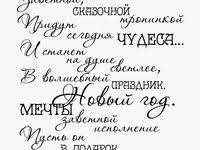 Заветной,
СКАЗОЧНОЙ
Придут тропинкой
сегодня ЧУДЕСА...
И станет
на душе светлее,
В волшебный
ПРАЗДНИК,
Новый год.
МЕЧТЫ
заветной
исполнение
Пусть он
В ПОДАРОК